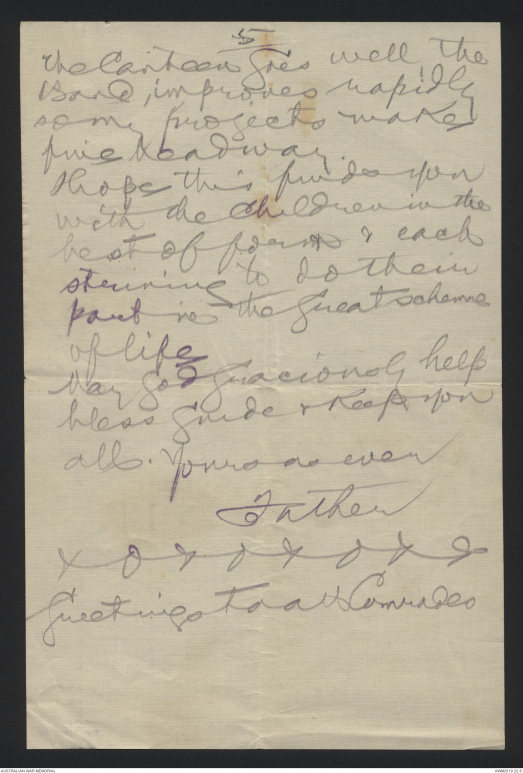 5
The Canteen goes well, the
Band, improves rapidly
so my projects make
fine headway.
I hope this finds you
with the children in the
best of form & each
striving to do their
part in the great scheme
of life
May God graciously help
bless guide & keep you
all. Yours as ever
Father
x o x o x o x o
Greetings to all Comrades
AUSTRALIAN WAR MEMORIAL